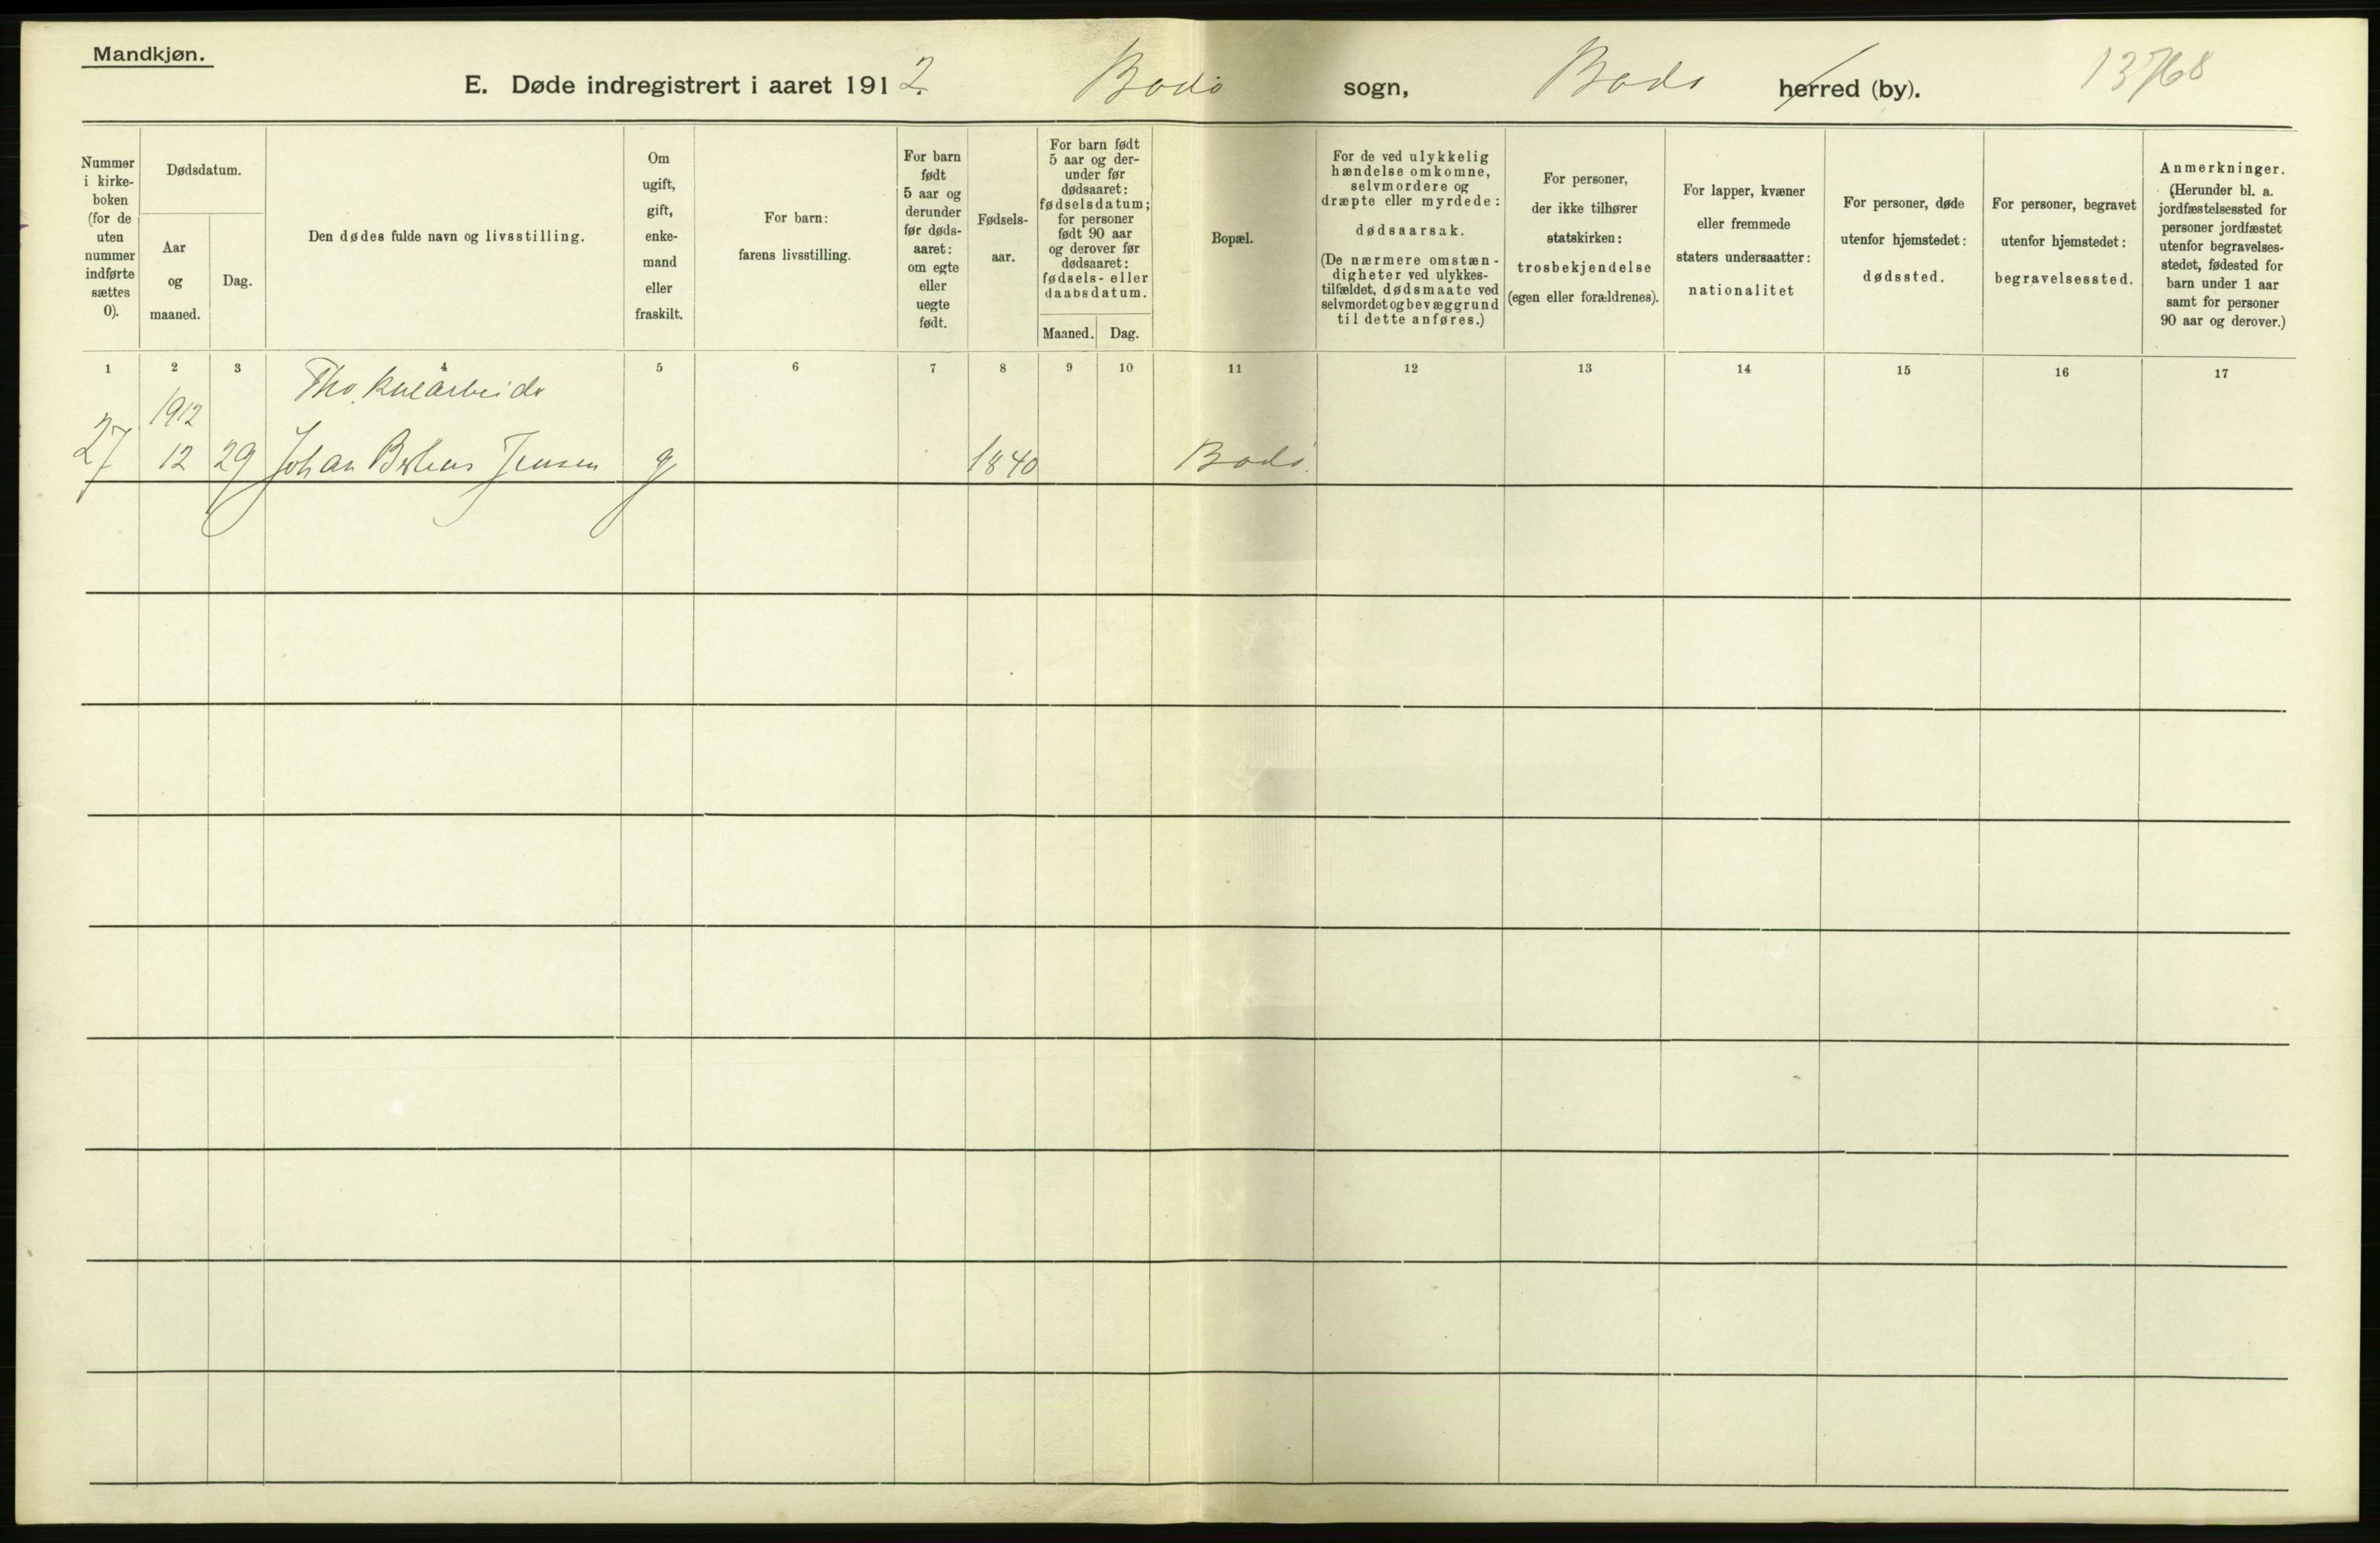 Mandkjøn.
E. Døde indregistrert i aaret 1912. Bodø sogn, Bodø herred (by). 13768
Nummer
i kirke-
boken
(for de
uten
nummer
indførte
sættes
0).
Dødsdatum.
Aar
og
maaned.
Dag.
Den dødes fulde navn og livsstilling.
Om
ugift,
gift,
enke-
mand
eller
fraskilt.
For barn:
farens livsstilling.
For barn
født
5 aar og
derunder
før døds-
aaret:
om egte
eller
uegte
født.
Fødsels-
aar.
For barn født
5 aar og der-
under før
dødsaaret:
fødselsdatum;
for personer
født 90 aar
og derover før
dødsaaret:
fødsels- eller
daabsdatum.
Maaned. Dag.
Bopæl.
For de ved ulykkelig
hændelse omkomne,
selvmordere og
dræpte eller myrdede:
dødsaarsak.
(De nærmere omstæn-
digheter ved ulykkes-
tilfældet, dødsmaate ved
selvmordet og bevæggrund
til dette anføres.)
For personer,
der ikke tilhører
statskirken:
trosbekjendelse
(egen eller forældrenes).
For lapper, kvæner
eller fremmede
staters undersaatter:
nationalitet
For personer, døde
utenfor hjemstedet:
dødssted.
For personer, begravet
utenfor hjemstedet:
begravelsessted.
Anmerkninger.
(Herunder bl. a.
jordfæstelsessted for
personer jordfæstet
utenfor begravelses-
stedet, fødested for
barn under 1 aar
samt for personer
90 aar og derover.)
1 2 3 4 5 6 7 8 9 10 11 12 13 14 15 16 17
1912
27 12 29 Johan Jensen g 1840 Bodø.